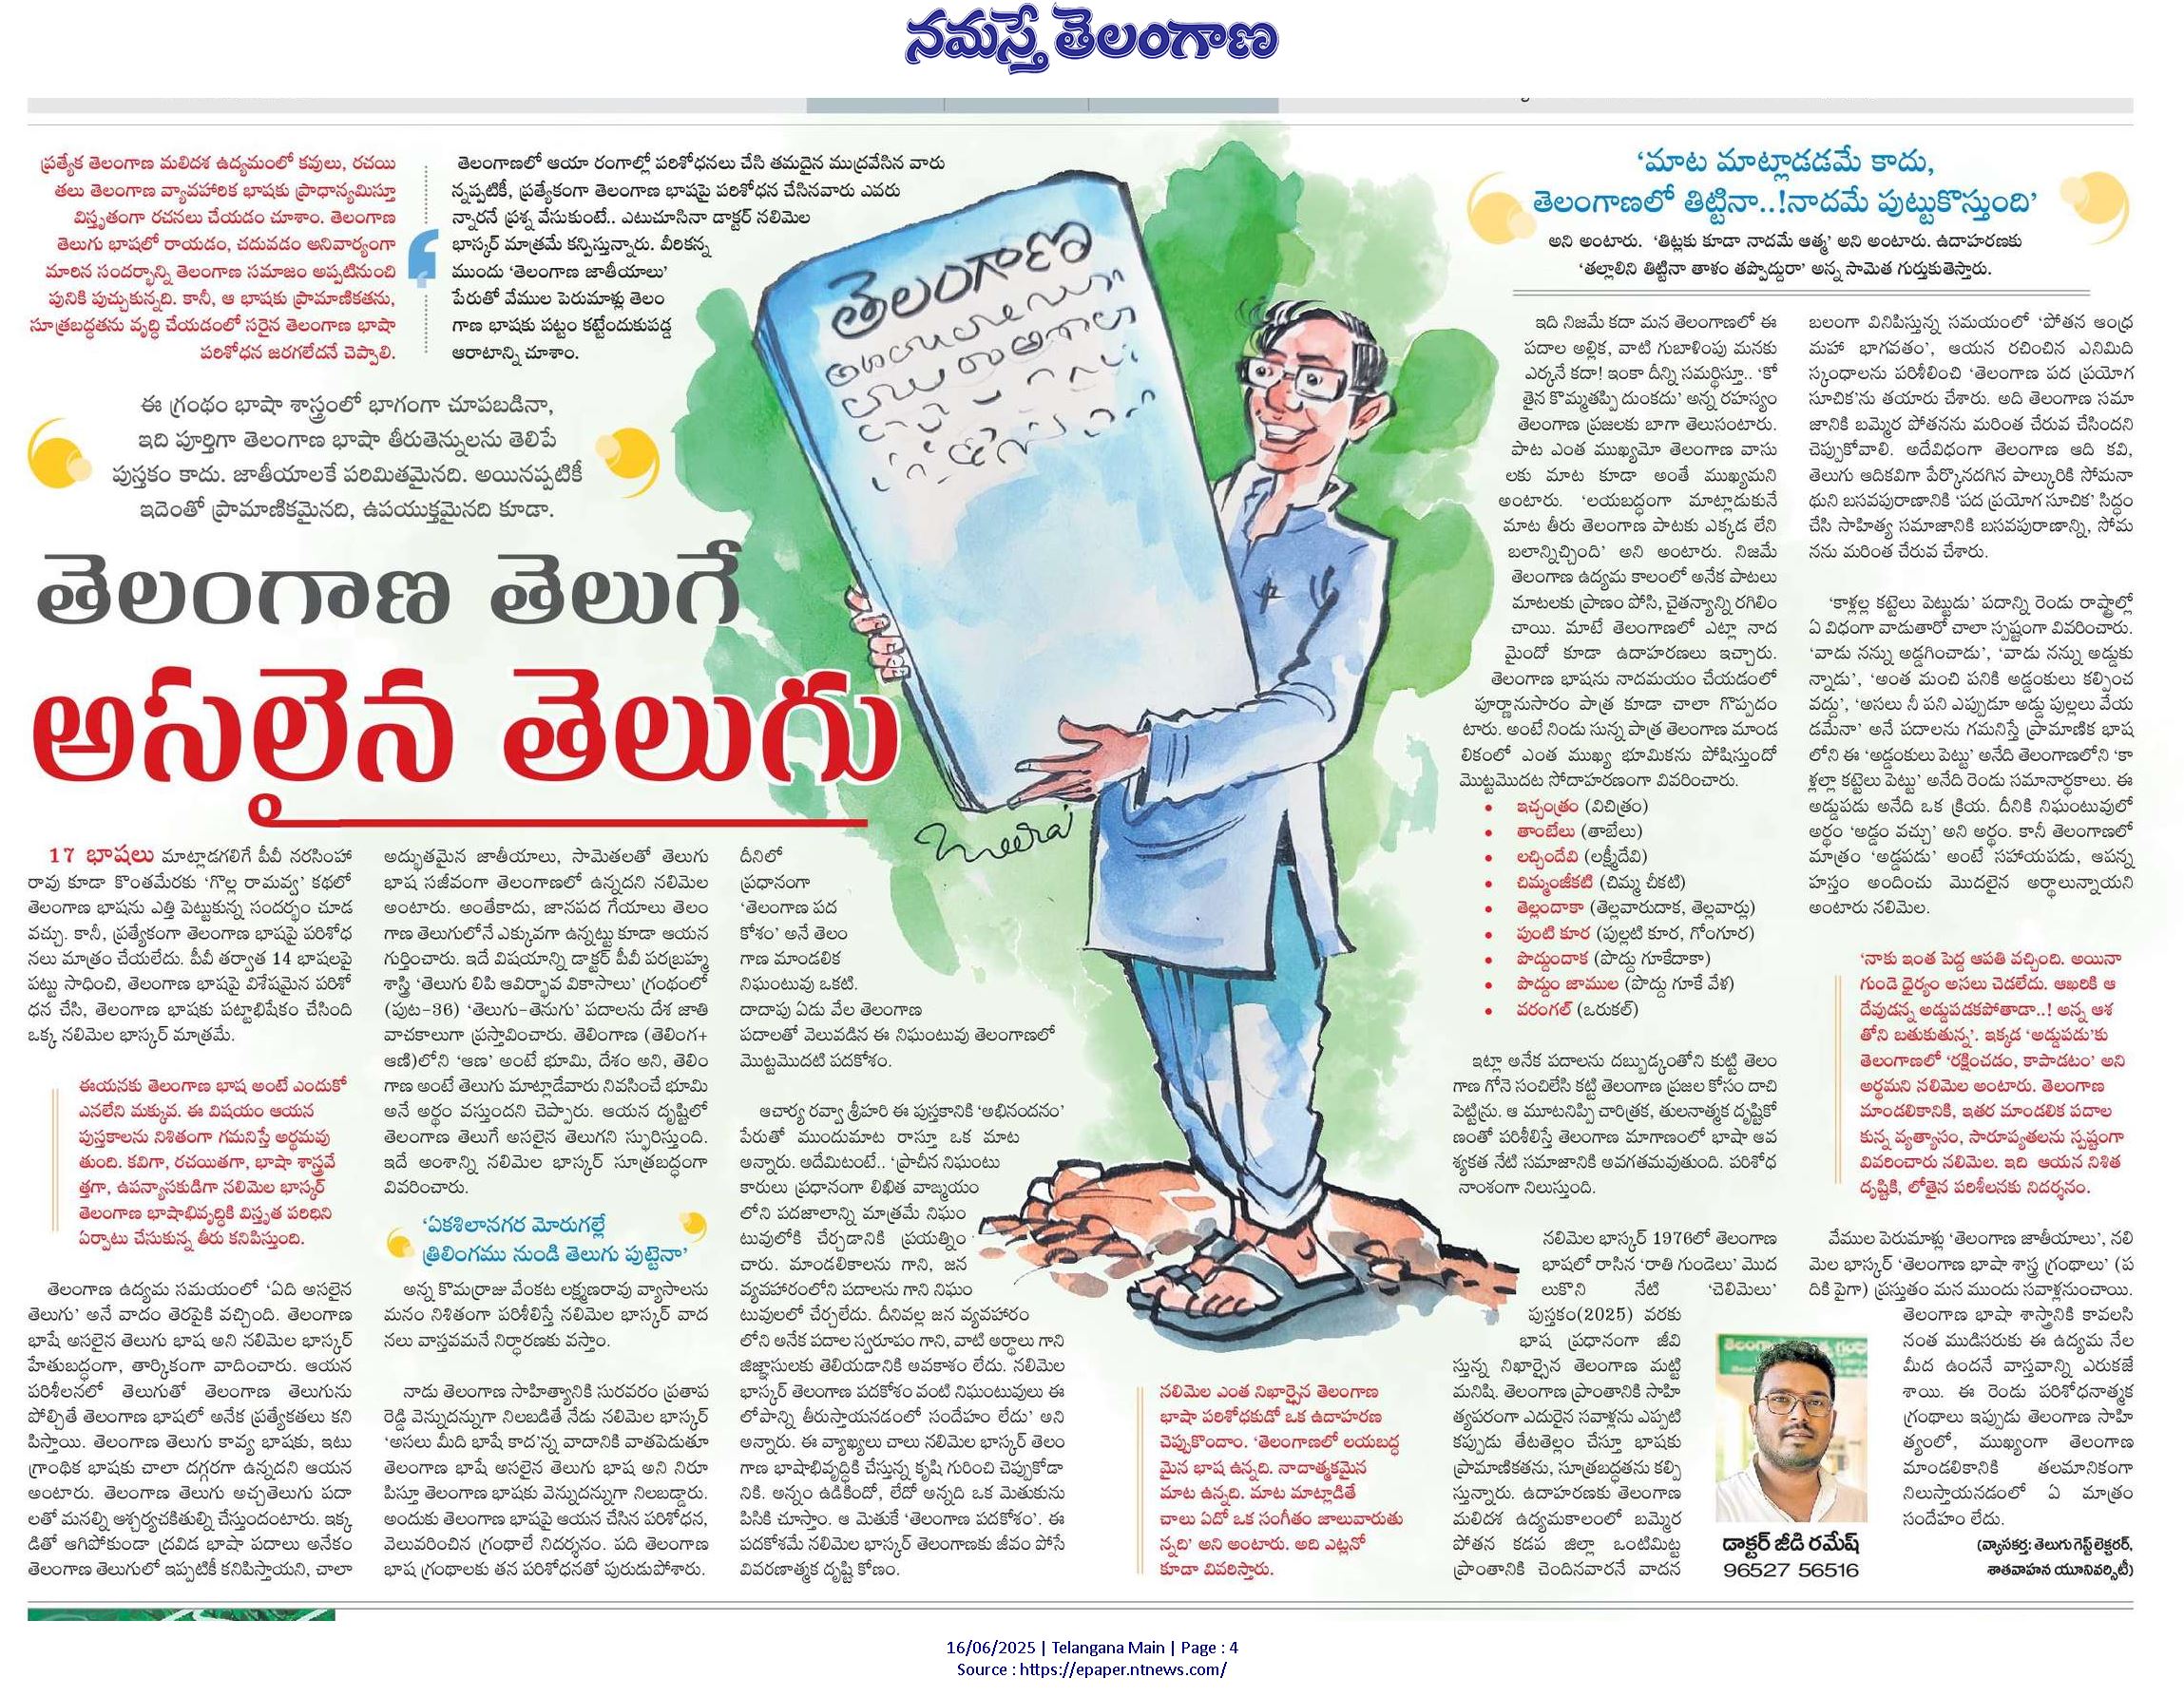 నమస్తే తెలంగాణ
ప్రత్యేక తెలంగాణ మలిదశ ఉద్యమంలో కవులు, రచయి
తలు తెలంగాణ వ్యావహారిక భాషకు ప్రాధాన్యమిస్తూ
విస్తృతంగా రచనలు చేయడం చూశాం. తెలంగాణ
తెలుగు భాషలో రాయడం, చదువడం అనివార్యంగా
మారిన సందర్భాన్ని తెలంగాణ సమాజం అప్పటినుంచి
పునికి పుచ్చుకున్నది. కానీ, ఆ భాషకు ప్రామాణికతను,
సూత్రబద్ధతను వృద్ధి చేయడంలో సరైన తెలంగాణ భాషా
పరిశోధన జరగలేదనే చెప్పాలి.
తెలంగాణలో ఆయా రంగాల్లో పరిశోధనలు చేసి తమదైన ముద్రవేసిన వారు
న్నప్పటికీ, ప్రత్యేకంగా తెలంగాణ భాషపై పరిశోధన చేసినవారు ఎవరు
న్నారనే ప్రశ్న వేసుకుంటే.. ఎటుచూసినా డాక్టర్ నలిమెల
భాస్కర్ మాత్రమే కన్పిస్తున్నారు. వీరికన్న
ముందు ‘తెలంగాణ జాతీయాలు’
పేరుతో వేముల పెరుమాళ్లు తెలం
గాణ భాషకు పట్టం కట్టేందుకుపడ్డ
ఆరాటాన్ని చూశాం.
ఈ గ్రంథం భాషా శాస్త్రంలో భాగంగా చూపబడినా,
ఇది పూర్తిగా తెలంగాణ భాషా తీరుతెన్నులను తెలిపే
పుస్తకం కాదు. జాతీయాలకే పరిమితమైనది. అయినప్పటికీ
ఇదెంతో ప్రామాణికమైనది, ఉపయుక్తమైనది కూడా.
తెలంగాణ తెలుగే
అసలైన తెలుగు
తెలంగాణ
17 భాషలు మాట్లాడగలిగే పీవీ నరసింహా
రావు కూడా కొంతమేరకు ‘గొల్ల రామవ్వ’ కథలో
తెలంగాణ భాషను ఎత్తి పెట్టుకున్న సందర్భం చూడ
వచ్చు. కానీ, ప్రత్యేకంగా తెలంగాణ భాషపై పరిశోధ
నలు మాత్రం చేయలేదు. పీవీ తర్వాత 14 భాషలపై
పట్టు సాధించి, తెలంగాణ భాషపై విశేషమైన పరిశో
ధన చేసి, తెలంగాణ భాషకు పట్టాభిషేకం చేసింది
ఒక్క నలిమెల భాస్కర్ మాత్రమే.
ఈయనకు తెలంగాణ భాష అంటే ఎందుకో
ఎనలేని మక్కువ. ఈ విషయం ఆయన
పుస్తకాలను నిశితంగా గమనిస్తే అర్థమవు
తుంది. కవిగా, రచయితగా, భాషా శాస్త్రవే
త్తగా, ఉపన్యాసకుడిగా నలిమెల భాస్కర్
తెలంగాణ భాషాభివృద్ధికి విస్తృత పరిధిని
ఏర్పాటు చేసుకున్న తీరు కనిపిస్తుంది.
తెలంగాణ ఉద్యమ సమయంలో ‘ఏది అసలైన
తెలుగు’ అనే వాదం తెరపైకి వచ్చింది. తెలంగాణ
భాషే అసలైన తెలుగు భాష అని నలిమెల భాస్కర్
హేతుబద్ధంగా, తార్కికంగా వాదించారు. ఆయన
పరిశీలనలో తెలుగుతో తెలంగాణ తెలుగును
పోల్చితే తెలంగాణ భాషలో అనేక ప్రత్యేకతలు కని
పిస్తాయి. తెలంగాణ తెలుగు కావ్య భాషకు, ఇటు
గ్రాంథిక భాషకు చాలా దగ్గరగా ఉన్నదని ఆయన
అంటారు. తెలంగాణ తెలుగు అచ్చతెలుగు పదా
లతో మనల్ని ఆశ్చర్యచకితుల్ని చేస్తుందంటారు. ఇక్క
డితో ఆగిపోకుండా ద్రవిడ భాషా పదాలు అనేకం
తెలంగాణ తెలుగులో ఇప్పటికీ కనిపిస్తాయని, చాలా
అద్భుతమైన జాతీయాలు, సామెతలతో తెలుగు
భాష సజీవంగా తెలంగాణలో ఉన్నదని నలిమెల
అంటారు. అంతేకాదు, జానపద గేయాలు తెలం
గాణ తెలుగులోనే ఎక్కువగా ఉన్నట్టు కూడా ఆయన
గుర్తించారు. ఇదే విషయాన్ని డాక్టర్ పీవీ పరబ్రహ్మ
శాస్త్రి ‘తెలుగు లిపి ఆవిర్భావ వికాసాలు’ గ్రంథంలో
(పుట-36) ‘తెలుగు-తెనుగు’ పదాలను దేశ జాతి
వాచకాలుగా ప్రస్తావించారు. తెలింగాణ (తెలింగ+
ఆణి)లోని ‘ఆణ’ అంటే భూమి, దేశం అని, తెలిం
గాణ అంటే తెలుగు మాట్లాడేవారు నివసించే భూమి
అనే అర్థం వస్తుందని చెప్పారు. ఆయన దృష్టిలో
తెలంగాణ తెలుగే అసలైన తెలుగని స్ఫురిస్తుంది.
ఇదే అంశాన్ని నలిమెల భాస్కర్ సూత్రబద్ధంగా
వివరించారు.
‘ఏకశిలానగర మోరుగల్లే
త్రిలింగము నుండి తెలుగు పుట్టెనా’
అన్న కొమర్రాజు వేంకట లక్ష్మణరావు వ్యాసాలను
మనం నిశితంగా పరిశీలిస్తే నలిమెల భాస్కర్ వాద
నలు వాస్తవమనే నిర్ధారణకు వస్తాం.
నాడు తెలంగాణ సాహిత్యానికి సురవరం ప్రతాప
రెడ్డి వెన్నుదన్నుగా నిలబడితే నేడు నలిమెల భాస్కర్
‘అసలు మీది భాషే కాద’న్న వాదానికి వాతపెడుతూ
తెలంగాణ భాషే అసలైన తెలుగు భాష అని నిరూ
పిస్తూ తెలంగాణ భాషకు వెన్నుదన్నుగా నిలబడ్డారు.
అందుకు తెలంగాణ భాషపై ఆయన చేసిన పరిశోధన,
వెలువరించిన గ్రంథాలే నిదర్శనం. పది తెలంగాణ
భాష గ్రంథాలకు తన పరిశోధనతో పురుడుపోశారు.
దీనిలో
ప్రధానంగా
‘తెలంగాణ పద
కోశం’ అనే తెలం
గాణ మాండలిక
నిఘంటువు ఒకటి.
దాదాపు ఏడు వేల తెలంగాణ
పదాలతో వెలువడిన ఈ నిఘంటువు తెలంగాణలో
మొట్టమొదటి పదకోశం.
ఆచార్య రవ్వా శ్రీహరి ఈ పుస్తకానికి ‘అభినందనం’
పేరుతో ముందుమాట రాస్తూ ఒక మాట
అన్నారు. అదేమిటంటే.. ‘ప్రాచీన నిఘంటు
కారులు ప్రధానంగా లిఖిత వాఙ్మయం
లోని పదజాలాన్ని మాత్రమే నిఘం
టువులోకి చేర్చడానికి ప్రయత్నిం
చారు. మాండలికాలను గాని, జన
వ్యవహారంలోని పదాలను గాని నిఘం
టువులలో చేర్చలేదు. దీనివల్ల జన వ్యవహారం
లోని అనేక పదాల స్వరూపం గాని, వాటి అర్థాలు గాని
జిజ్ఞాసులకు తెలియడానికి అవకాశం లేదు. నలిమెల
భాస్కర్ తెలంగాణ పదకోశం వంటి నిఘంటువులు ఈ
లోపాన్ని తీరుస్తాయనడంలో సందేహం లేదు’ అని
అన్నారు. ఈ వ్యాఖ్యలు చాలు నలిమెల భాస్కర్ తెలం
గాణ భాషాభివృద్ధికి చేస్తున్న కృషి గురించి చెప్పుకోడా
నికి. అన్నం ఉడికిందో, లేదో అన్నది ఒక మెతుకును
పిసికి చూస్తాం. ఆ మెతుకే ‘తెలంగాణ పదకోశం’. ఈ
పదకోశమే నలిమెల భాస్కర్ తెలంగాణకు జీవం పోసే
వివరణాత్మక దృష్టి కోణం.
నలిమెల ఎంత నిఖార్సైన తెలంగాణ
భాషా పరిశోధకుడో ఒక ఉదాహరణ
చెప్పుకొందాం. ‘తెలంగాణలో లయబద్ధ
మైన భాష ఉన్నది. నాదాత్మకమైన
మాట ఉన్నది. మాట మాట్లాడితే
చాలు ఏదో ఒక సంగీతం జాలువారుతు
న్నది’ అని అంటారు. అది ఎట్లనో
కూడా వివరిస్తారు.
‘మాట మాట్లాడడమే కాదు,
తెలంగాణలో తిట్టినా..!నాదమే పుట్టుకొస్తుంది’
అని అంటారు. ‘తిట్లకు కూడా నాదమే ఆత్మ’ అని అంటారు. ఉదాహరణకు
‘తల్లాలిని తిట్టినా తాళం తప్పొద్దురా’ అన్న సామెత గుర్తుకుతెస్తారు.
ఇది నిజమే కదా మన తెలంగాణలో ఈ
పదాల అల్లిక, వాటి గుబాళింపు మనకు
ఎర్కనే కదా! ఇంకా దీన్ని సమర్థిస్తూ.. ‘కో
తైన కొమ్మతప్పి దుంకదు’ అన్న రహస్యం
తెలంగాణ ప్రజలకు బాగా తెలుసంటారు.
పాట ఎంత ముఖ్యమో తెలంగాణ వాసు
లకు మాట కూడా అంతే ముఖ్యమని
అంటారు. ‘లయబద్ధంగా మాట్లాడుకునే
మాట తీరు తెలంగాణ పాటకు ఎక్కడ లేని
బలాన్నిచ్చింది’ అని అంటారు. నిజమే
తెలంగాణ ఉద్యమ కాలంలో అనేక పాటలు
మాటలకు ప్రాణం పోసి, చైతన్యాన్ని రగిలిం
చాయి. మాటే తెలంగాణలో ఎట్లా నాద
మైందో కూడా ఉదాహరణలు ఇచ్చారు.
తెలంగాణ భాషను నాదమయం చేయడంలో
పూర్ణానుసారం పాత్ర కూడా చాలా గొప్పదం
టారు. అంటే నిండు సున్న పాత్ర తెలంగాణ మాండ
లికంలో ఎంత ముఖ్య భూమికను పోషిస్తుందో
మొట్టమొదట సోదాహరణంగా వివరించారు.
• ఇచ్చంత్రం (విచిత్రం)
• తాంబేలు (తాబేలు)
• లచ్చిందేవి (లక్ష్మీదేవి)
• చిమ్మంజీకటి (చిమ్మ చీకటి)
• తెల్లందాకా (తెల్లవారుదాక, తెల్లవార్లు)
• పుంటి కూర (పుల్లటి కూర, గోంగూర)
• పొద్దుందాక (పొద్దు గూకేదాకా)
• పొద్దుం జాముల (పొద్దు గూకే వేళ)
• వరంగల్ (ఒరుకల్)
ఇట్లా అనేక పదాలను దబ్బుడ్కంతోని కుట్టి తెలం
గాణ గోనె సంచిలేసి కట్టి తెలంగాణ ప్రజల కోసం దాచి
పెట్టిను. ఆ మూటనిప్పి చారిత్రక, తులనాత్మక దృష్టికో
ణంతో పరిశీలిస్తే తెలంగాణ మాగాణంలో భాషా ఆవ
శ్యకత నేటి సమాజానికి అవగతమవుతుంది. పరిశోధ
నాంశంగా నిలుస్తుంది.
నలిమెల భాస్కర్ 1976లో తెలంగాణ
భాషలో రాసిన ‘రాతి గుండెలు’ మొద
లుకొని నేటి ‘చెలిమెలు’
పుస్తకం(2025) వరకు
భాష ప్రధానంగా జీవి
స్తున్న నిఖార్సైన తెలంగాణ మట్టి
మనిషి. తెలంగాణ ప్రాంతానికి సాహి
త్యపరంగా ఎదురైన సవాళ్లను ఎప్పటి
కప్పుడు తేటతెల్లం చేస్తూ భాషకు
ప్రామాణికతను, సూత్రబద్ధతను కల్పి
స్తున్నారు. ఉదాహరణకు తెలంగాణ
మలిదశ ఉద్యమకాలంలో బమ్మెర
పోతన కడప జిల్లా ఒంటిమిట్ట
ప్రాంతానికి చెందినవారనే వాదన
బలంగా వినిపిస్తున్న సమయంలో ‘పోతన ఆంధ్ర
మహా భాగవతం’, ఆయన రచించిన ఎనిమిది
స్కంధాలను పరిశీలించి ‘తెలంగాణ పద ప్రయోగ
సూచిక’ను తయారు చేశారు. అది తెలంగాణ సమా
జానికి బమ్మెర పోతనను మరింత చేరువ చేసిందని
చెప్పుకోవాలి. అదేవిధంగా తెలంగాణ ఆది కవి,
తెలుగు ఆదికవిగా పేర్కొనదగిన పాల్కురికి సోమనా
థుని బసవపురాణానికి ‘పద ప్రయోగ సూచిక’ సిద్ధం
చేసి సాహిత్య సమాజానికి బసవపురాణాన్ని, సోమ
నను మరింత చేరువ చేశారు.
‘కాళ్లల్ల కట్టెలు పెట్టుడు’ పదాన్ని రెండు రాష్ట్రాల్లో
ఏ విధంగా వాడుతారో చాలా స్పష్టంగా వివరించారు.
‘వాడు నన్ను అడ్డగించాడు’, ‘వాడు నన్ను అడ్డుకు
న్నాడు’, ‘అంత మంచి పనికి అడ్డంకులు కల్పించ
వద్దు’, ‘అసలు నీ పని ఎప్పుడూ అడ్డు పుల్లలు వేయ
డమేనా’ అనే పదాలను గమనిస్తే ప్రామాణిక భాష
లోని ఈ ‘అడ్డంకులు పెట్టు’ అనేది తెలంగాణలోని ‘కా
ళ్లల్లా కట్టెలు పెట్టు’ అనేది రెండు సమానార్థకాలు. ఈ
అడ్డుపడు అనేది ఒక క్రియ. దీనికి నిఘంటువులో
అర్థం ‘అడ్డం వచ్చు’ అని అర్థం. కానీ తెలంగాణలో
మాత్రం ‘అడ్డపడు’ అంటే సహాయపడు, ఆపన్న
హస్తం అందించు మొదలైన అర్థాలున్నాయని
అంటారు నలిమెల.
‘నాకు ఇంత పెద్ద ఆపతి వచ్చింది. అయినా
గుండె ధైర్యం అసలు చెడలేదు. ఆఖరికి ఆ
దేవుడన్న అడ్డుపడకపోతాడా..! అన్న ఆశ
తోని బతుకుతున్న’. ఇక్కడ ‘అడ్డుపడు’కు
తెలంగాణలో ‘రక్షించడం, కాపాడటం’ అని
అర్థమని నలిమెల అంటారు. తెలంగాణ
మాండలికానికి, ఇతర మాండలిక పదాల
కున్న వ్యత్యాసం, సారూప్యతలను స్పష్టంగా
వివరించారు నలిమెల. ఇది ఆయన నిశిత
దృష్టికి, లోతైన పరిశీలనకు నిదర్శనం.
వేముల పెరుమాళ్లు ‘తెలంగాణ జాతీయాలు’, నలి
మెల భాస్కర్ ‘తెలంగాణ భాషా శాస్త్ర గ్రంథాలు’ (ప
దికి పైగా) ప్రస్తుతం మన ముందు సవాళ్లనుంచాయి.
తెలంగాణ భాషా శాస్త్రానికి కావలసి
నంత ముడిసరుకు ఈ ఉద్యమ నేల
మీద ఉందనే వాస్తవాన్ని ఎరుకజే
శాయి. ఈ రెండు పరిశోధనాత్మక
గ్రంథాలు ఇప్పుడు తెలంగాణ సాహి
త్యంలో, ముఖ్యంగా తెలంగాణ
మాండలికానికి తలమానికంగా
నిలుస్తాయనడంలో ఏ మాత్రం
సందేహం లేదు.
(వ్యాసకర్త: తెలుగు గెస్ట్ లెక్చరర్,
శాతవాహన యూనివర్సిటీ)
డాక్టర్ జీడి రమేష్
96527 56516
16/06/2025 | Telangana Main | Page : 4
Source : https://epaper.ntnews.com/